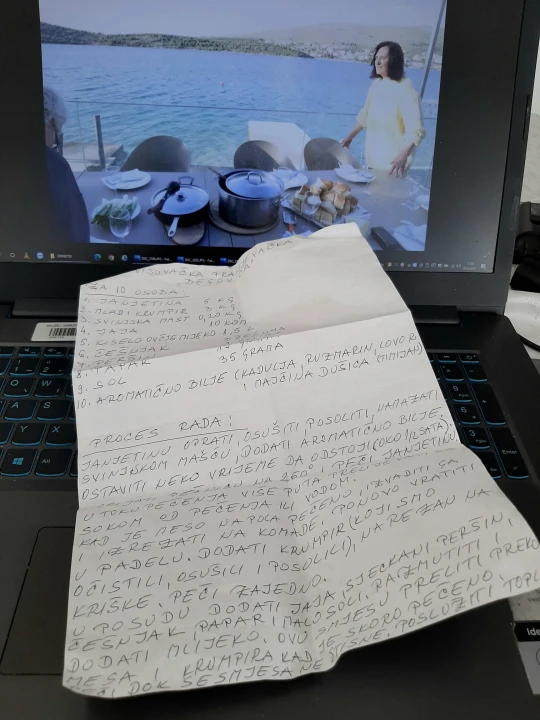 ZA 10 OSOBA:
1. JANJETINA 5 Kg
2. MLADI KRUMPIR 3 Kg
3. SVINJSKA MAST 0,20 Kg
4. JAJA 10 KOM.
5. KISELO OVČJE MLIJEKO 1,5
6. ČEŠNJAK
7. PERŠIN
8. PAPAR 35 GRAMA
9. SOL
10. AROMATIČNO BILJE (KADULJA, RUZMARIN, LOVOR
I MAJČINA DUŠICA (TIMIJAN)
PROCES RADA:
JANJETINU OPRATI, OSUŠITI, POSOLITI, NAMAZATI
SVINJSKOM MAŠĆU, DODATI AROMATIČNO BILJE.
OSTAVITI NEKO VRIJEME DA ODSTOJI (OKO 1/2 SATA).
PEČI JANJETINU,
U TOKU PEČENJA VIŠE PUTA
SOKOM OD PEČENJA ILI VODOM.
KAD JE MESO NA POLA PEČENO, IZVADITI GA
I IZREZATI NA KOMADE, PONOVO VRATITI
U PADELU. DODATI KRUMPIR (KOJI SMO
OČISTILI, OSUŠILI I POSOLILI), NAREZAN NA
KRIŠKE. PEČI ZAJEDNO.
U POSUDU DODATI JAJA, SJECKANI PERŠIN,
ČEŠNJAK, PAPAR I MALO SOLI. RAZMUTITI I
DODATI MLIJEKO. OVU SMJESU PRELITI PREKO
MESA I KRUMPIRA KAD JE SKORO PEČENO.
PEČI DOK SE SMJESA NE STISNE. POSLUŽITI TOPLO